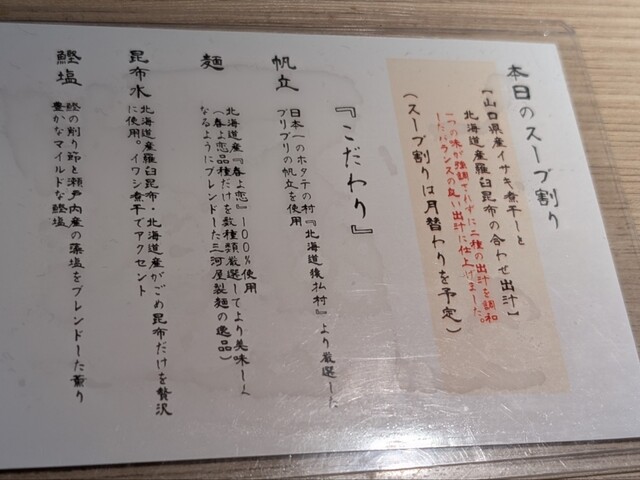 本日のスープ割り
【山口県産イサキ煮干しと
北海道産羅臼昆布の合わせ出汁】
一つの味が強調されずに二種の出汁を調和
したバランスの良い出汁に仕上げました。
(スープ割りは月替わりを予定)
『こだわり』
帆立
日本一のホタテの村『北海道猿払村』より厳選した
プリプリの帆立を使用
麺
北海道産『春よ恋』100%使用
(春よ恋品種だけを数種類厳選してより美味しく
なるようにブレンドした三河屋製麺の逸品)
昆布水
北海道産羅臼昆布・北海道産がごめ昆布だけを贅沢
に使用。イワシ煮干でアクセント
鰹塩
鰹の削り節と瀬戸内産の藻塩をブレンドした薫り
豊かなマイルドな鰹塩